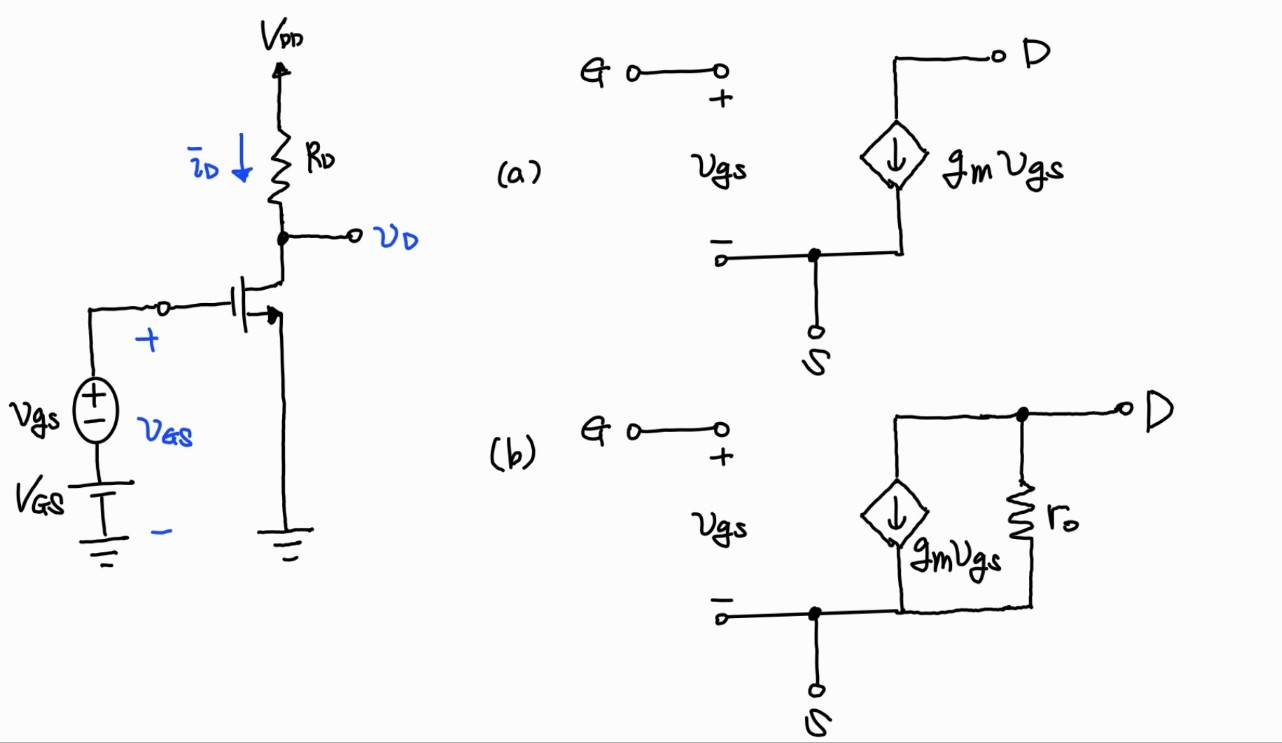 V_DD
i_D
R_D
v_D
+
v_gs
+
−
v_GS
V_GS
−
(a)
G
+
v_gs
−
D
g_m v_gs
S
(b)
G
+
v_gs
−
D
g_m v_gs
r_o
S